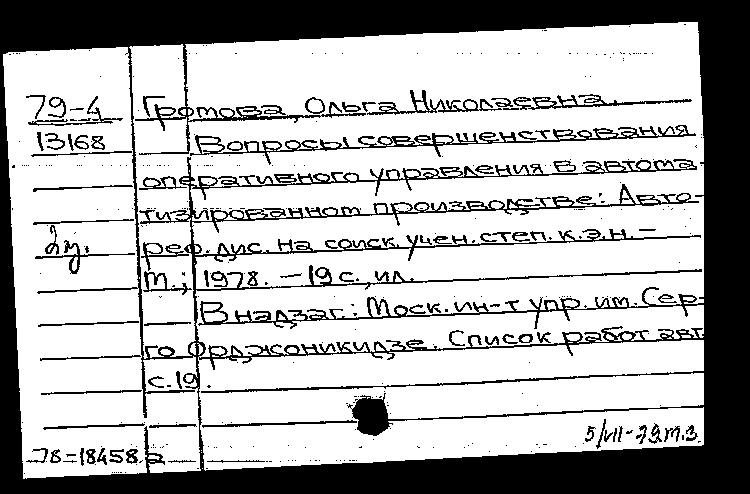 79-4 Громова, Ольга Николаевна.
13168 Вопросы совершенствования
оперативного управления в автома-
тизированном производстве: Авто-
реф. дис. на соиск. учен. степ. к.э.н. –
М.; 1978. – 19 с., ил.
В надзаг.: Моск. ин-т упр. им. Сер-
го Орджоникидзе. Список работ авт.
с. 19.
5/VII-79 м.з.
78-18458 а